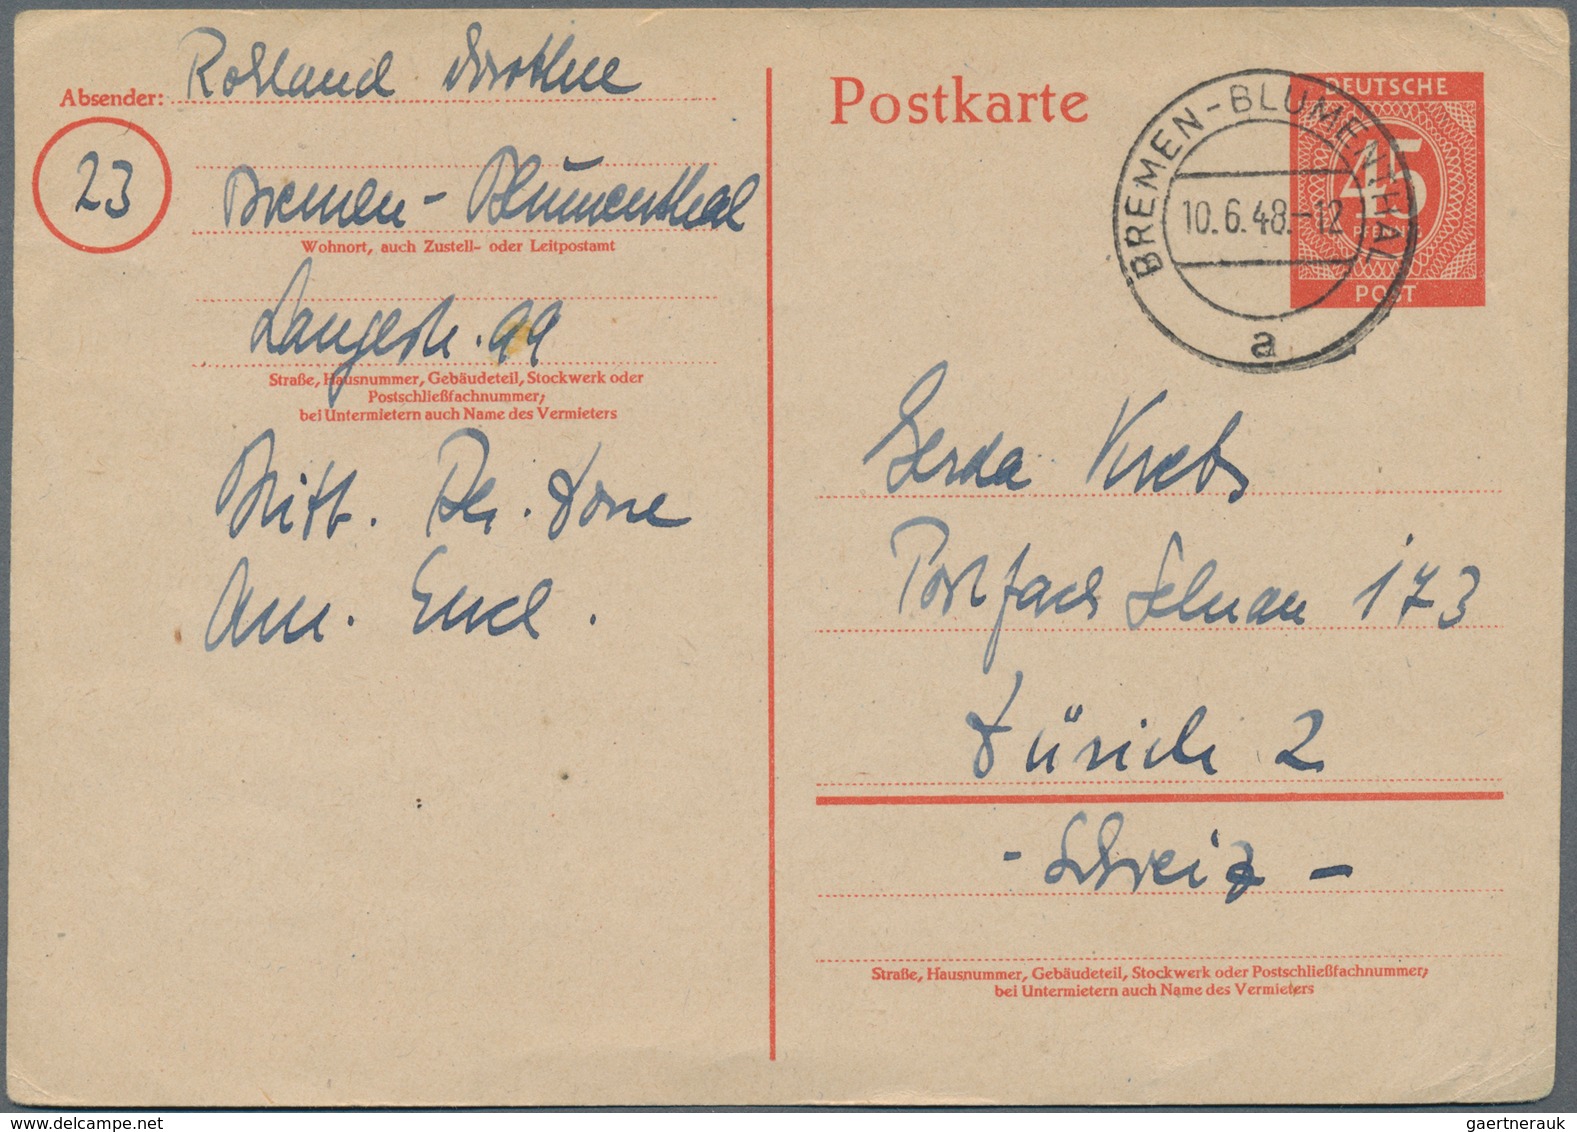 Absender: Rohland Dorothee
23
Bremen-Blumenthal
Wohnort, auch Zustell- oder Leitpostamt
Langestr. 99
Straße, Hausnummer, Gebäudeteil, Stockwerk oder
Postschließfachnummer;
bei Untermietern auch Name des Vermieters
Brit. Zone
Am. Encl.
Postkarte
DEUTSCHE
45
PFENNIG
POST
BREMEN-BLUMENTHAL
10.6.48.-12
a
Gerda Krebs
Postfach Selnau 173
Zürich 2
- Schweiz -
Straße, Hausnummer, Gebäudeteil, Stockwerk oder Postschließfachnummer;
bei Untermietern auch Name des Vermieters
gaertnerauk